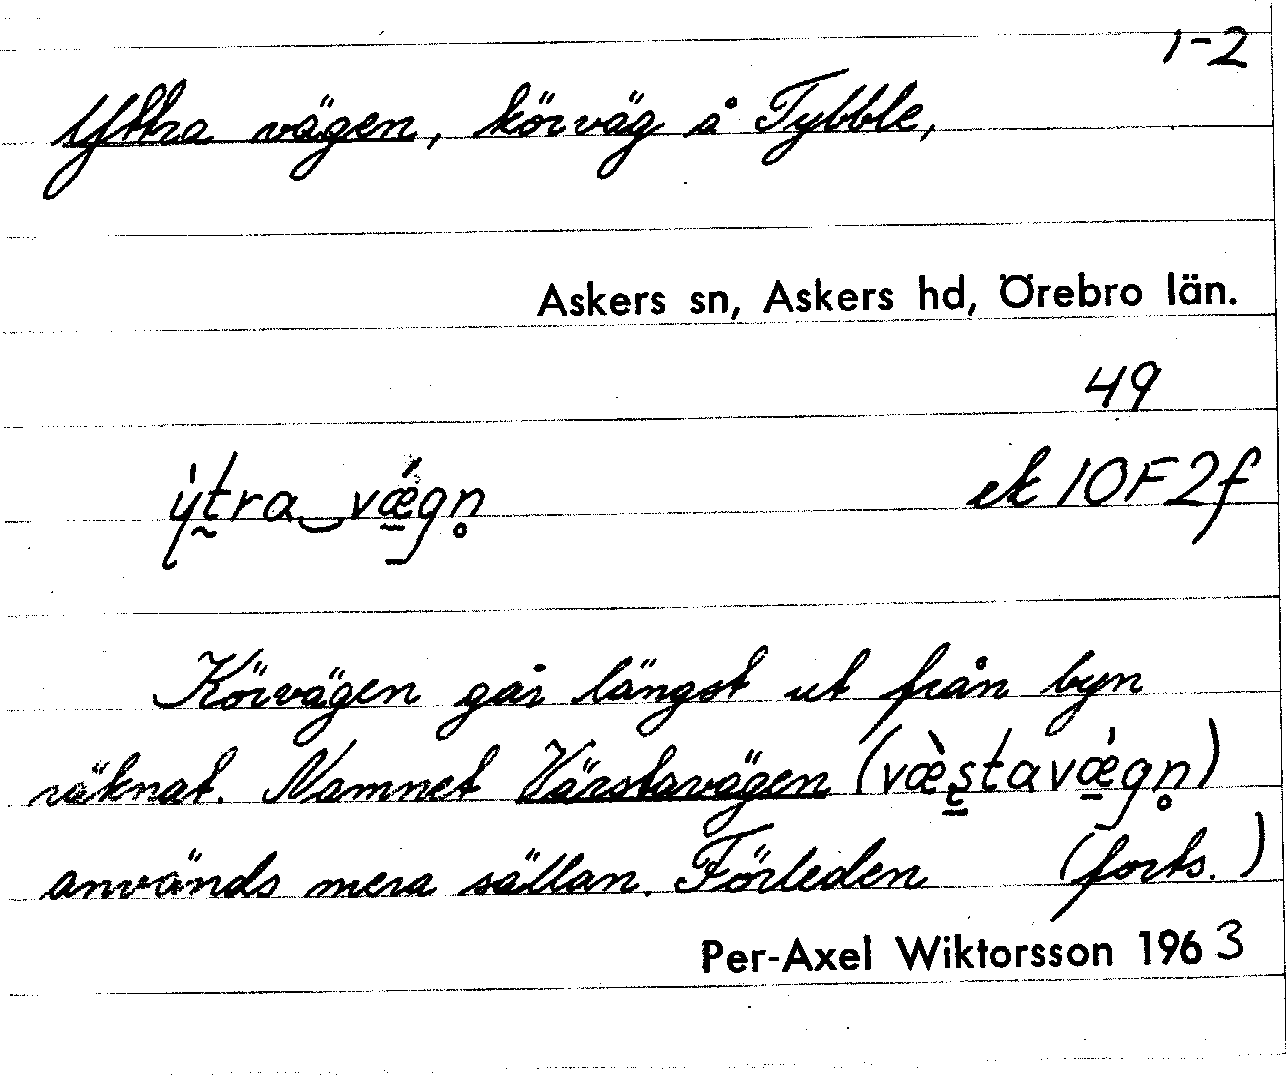 1-2
Yttra vägen, körväg å Tybble,
Askers sn, Askers hd, Örebro län.
49
ýt̰ra‿vǽ̱gn̥ ek 10F2f
Körvägen går längst ut från byn
räknat. Namnet Värstavägen (væ̀ʂtavǽ̱gn̥)
används mera sällan. Förleden (forts.)
Per-Axel Wiktorsson 1963